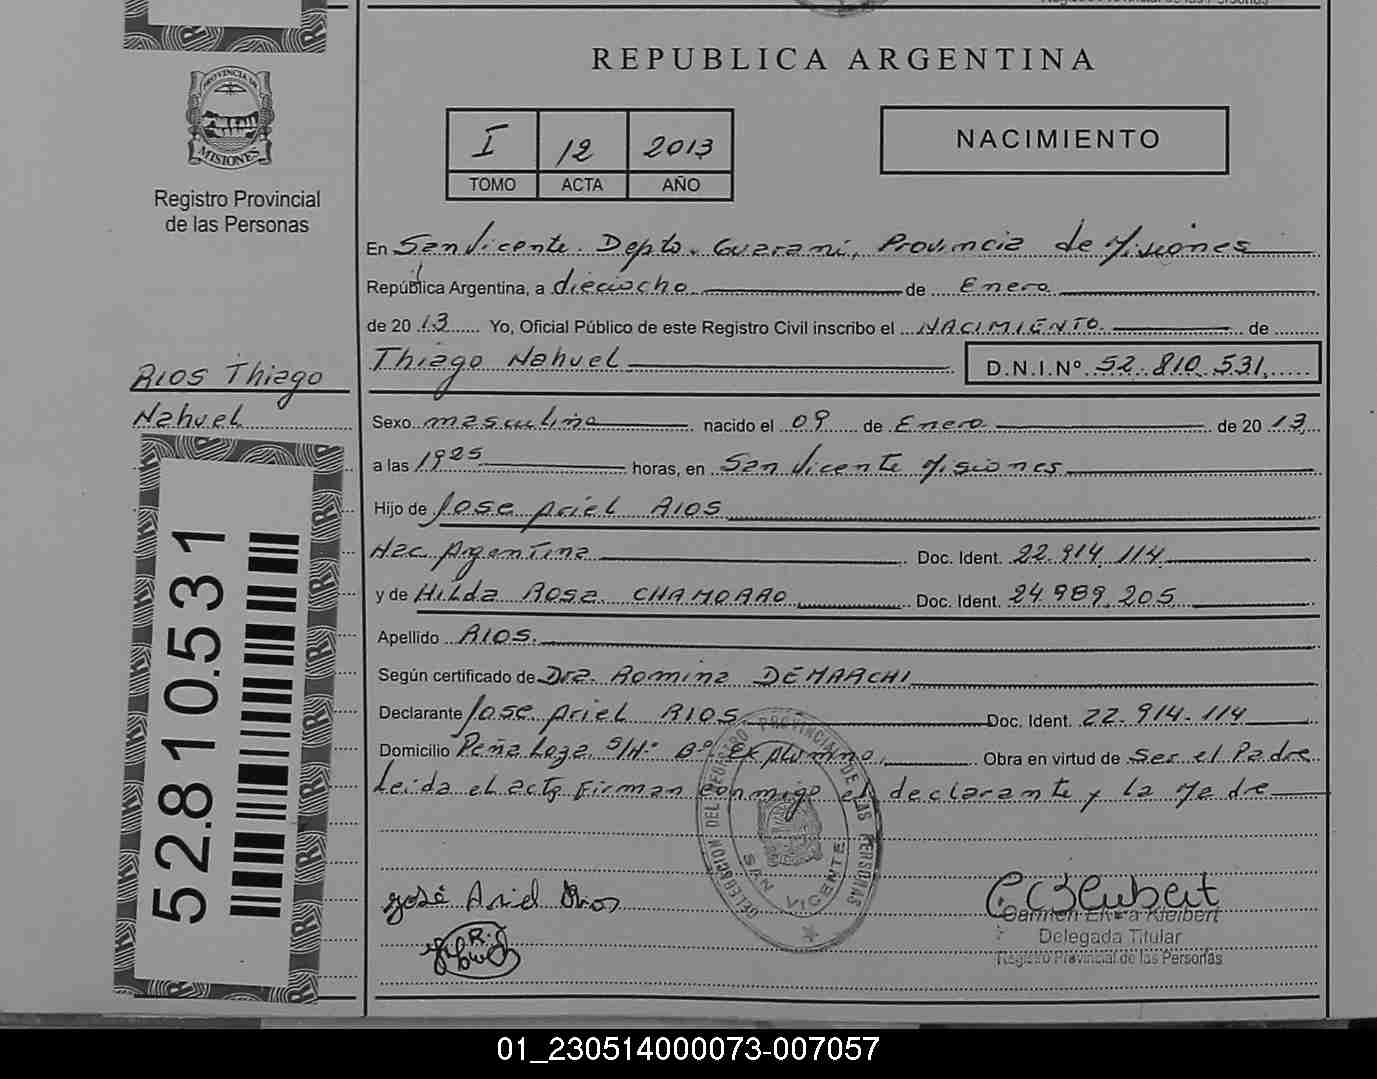 REPUBLICA ARGENTINA
PROVINCIA DE
MISIONES
Registro Provincial
de las Personas
I 12 2013
TOMO ACTA AÑO
NACIMIENTO
En San Vicente. Depto. Guarani, Provincia de Misiones
República Argentina, a dieciocho de Enero
de 2013 Yo, Oficial Público de este Registro Civil inscribo el NACIMIENTO de
Thiago Nahuel D.N.I.Nº 52.810.531
RIOS Thiago
Nahuel
Sexo masculino nacido el 09 de Enero de 2013
a las 1925 horas, en San Vicente Misiones
Hijo de Jose Ariel RIOS
Nac Argentina Doc. Ident. 22.914.114
y de Hilda Rosa CHAMORRO Doc. Ident. 24.989.205
Apellido RIOS.
Según certificado de Dra. Romina DEMARCHI
Declarante Jose Ariel RIOS Doc. Ident. 22.914.114
Domicilio Peña Loza S/Nº Bº Obra en virtud de Ser el Padre
Leida el acta Firman conmigo el declarante y la Madre
52.810.531
DELEGACION DEL REGISTRO PROVINCIAL DE LAS PERSONAS
SAN VICENTE
José Ariel Rios
Carmen Elvira Kleibert
Delegada Titular
Registro Provincial de las Personas
01_230514000073-007057